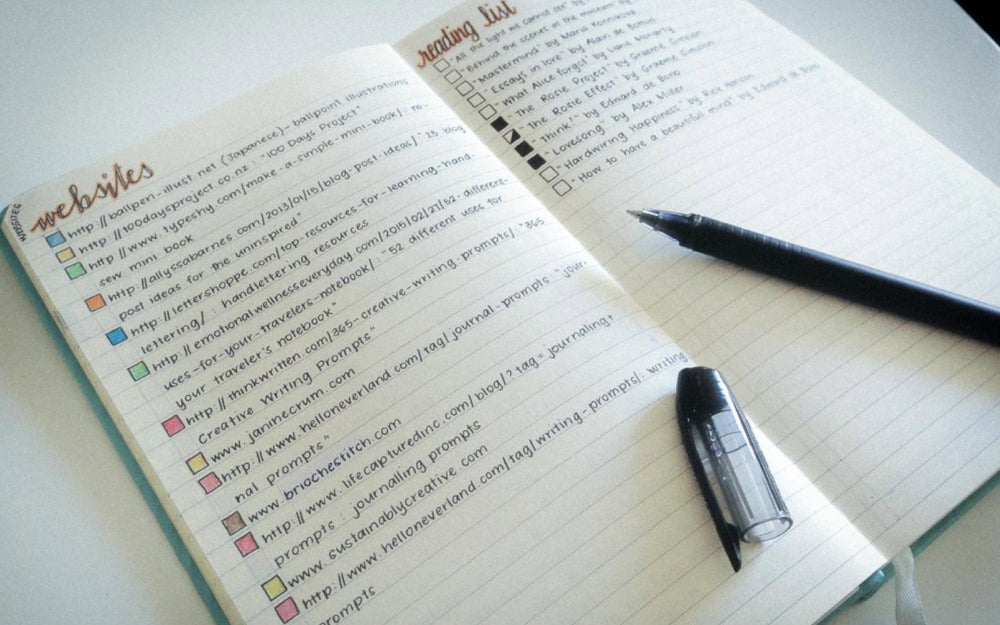 WEBSITES
websites
http://ballpen-illust.net (Japanese)- ballpoint illustrations
http://100daysproject.co.nz : "100 Days Project"
http://www.typeshy.com/make-a-simple-mini-book/: 10-
sew mini book
http://allyssabarnes.com/2013/01/15/blog-post-ideas/: "23 blog
post ideas for the uninspired"
http://lettershoppe.com/top-resources-for-learning-hand-
lettering/ : handlettering resources
http://emotionalwellnesseveryday.com/2015/02/27/52-different-
uses-for-your-travelers-notebook/: "52 different uses for
your traveler's notebook"
http://thinkwritten.com/365-creative-writing-prompts/: "365
Creative Writing Prompts"
www.janinecrum.com
http://www.helloneverland.com/tag/journal-prompts : "jour-
nal prompts"
www.briochestitch.com
http://www.lifecapturedinc.com/blog/?tag=journaling+
prompts : journalling prompts
www.sustainablycreative.com
http://www.helloneverland.com/tag/writing-prompts/: writing
prompts
reading list
"All the light we cannot see" by
"Behind the scenes at the museum" by
"Mastermind" by Maria Konnikova
"Essays in love" by Alain de Botton
"What Alice forgot" by Liane Moriarty
"The Rosie Project" by Graeme Simsion
"The Rosie Effect" by Graeme Simsion
"Think!" by Edward de Bono
"Lovesong" by Alex Miller
"Hardwiring Happiness" by Rick Hanson
"How to have a beautiful mind" by Edward de Bono